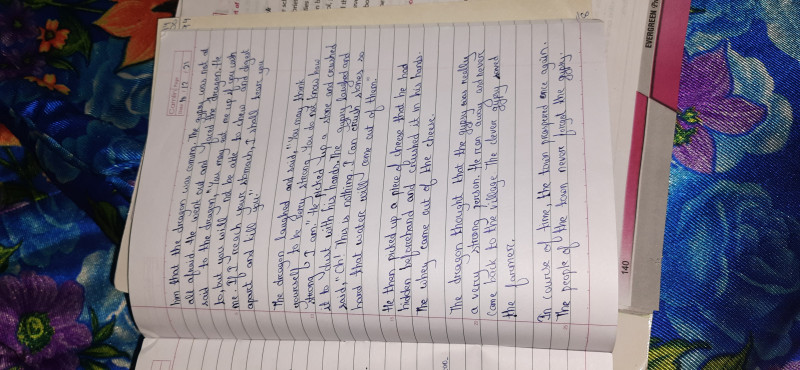 him that the dragon was coming. The gypsy was not at
all afraid. He went out and faced the dragon. He
said to the dragon, "You may eat me up if you wish
to, but you will not be able to chew and digest
me. If I reach your stomach, I shall tear you
apart and kill you."
The dragon laughed and said, "You may think
yourself to be very strong. You do not know how
strong I am." He picked up a stone and crushed
it to dust with his hands. The gypsy laughed and
said, "Oh! This is nothing. I can crush stones so
hard that water will come out of them."
He then picked up a piece of cheese that he had
hidden beforehand and crushed it in his hands.
The whey came out of the cheese.
The dragon thought that the gypsy was really
a very strong person. He ran away and never
came back to the village. The clever gypsy
the
In course of time, the town prospered once again.
The people of the town never forgot the gypsy.
140
EVERGREEN